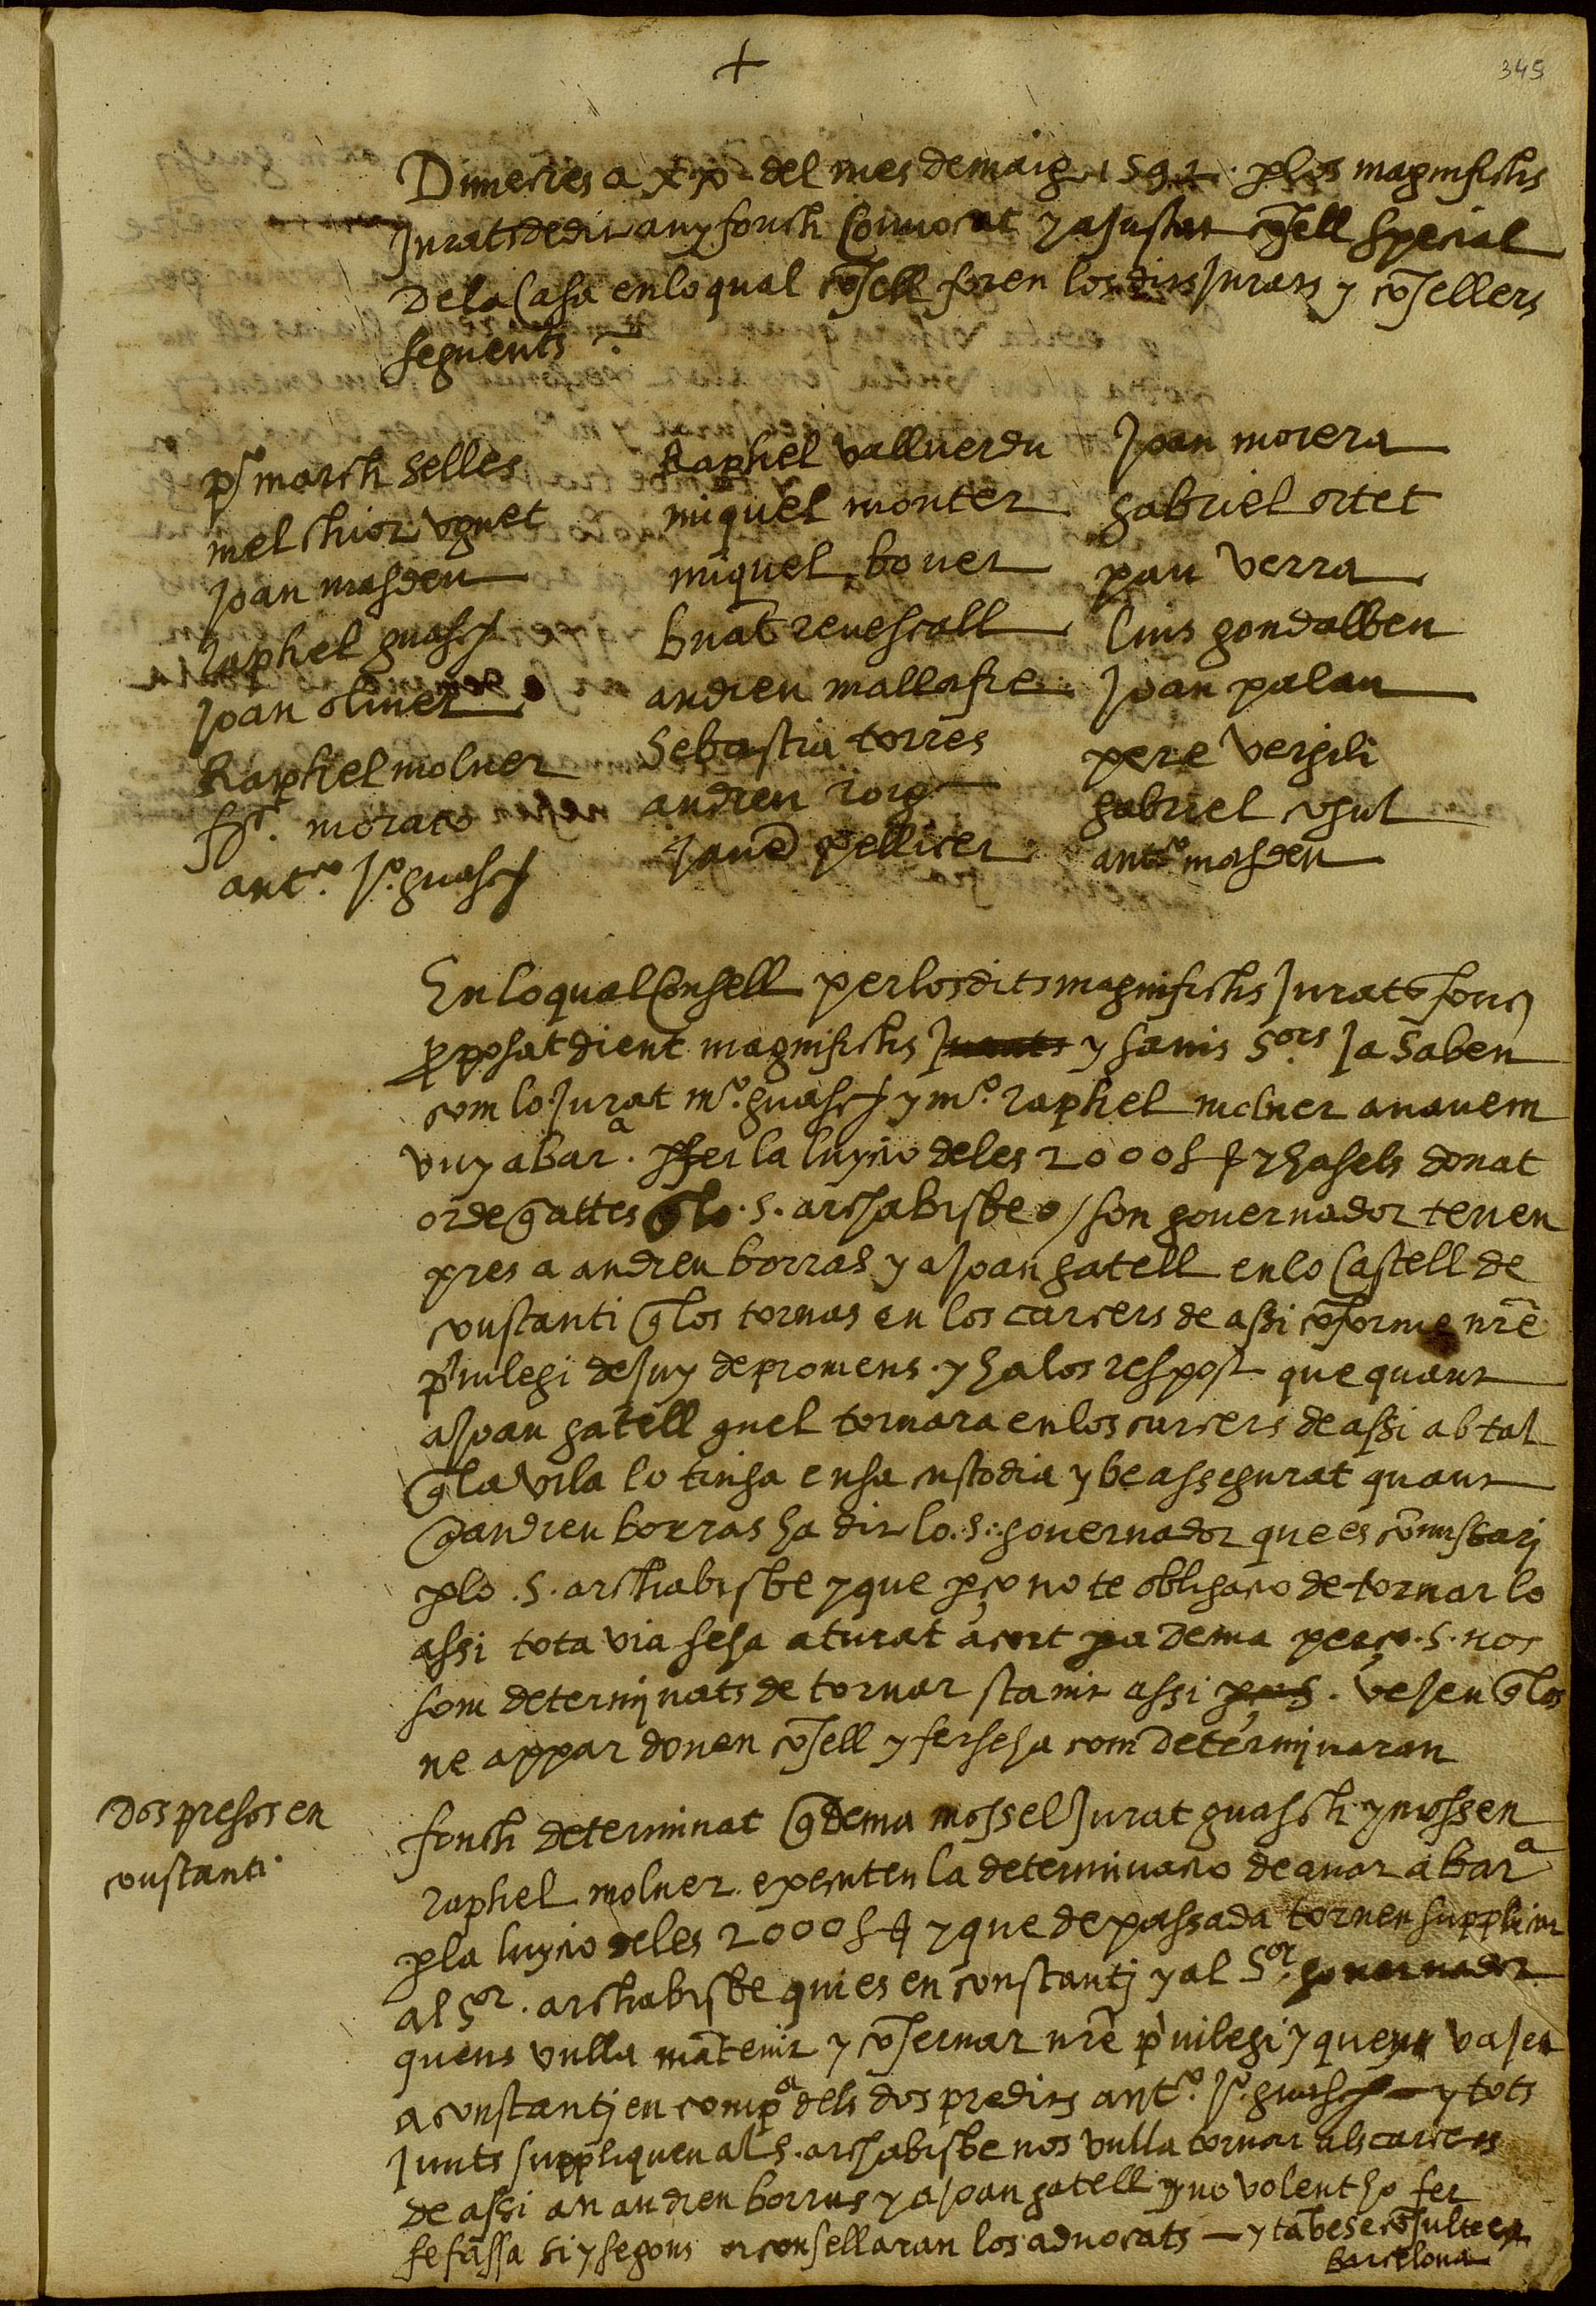 345
Dimecres a xx del mes de maig 1592 . plos magnifichs
Jurats de dit any fonch convocat y aJustat coJell special
de la Casa enloqual coJell foren los dits Jurats y coJellers
seguents
pº march selles
melchior ugnet
Joan masdeu
raphel guasch
Joan oliver
Raphel molner
morato
antº. Jº. guasch
Raphel vallverdu
miquel monter
miquel bover
bnat revescall
andreu mallafre
Sebastia torres
andreu roig
Jaue pellicer
Joan morera
gabriel ortet
pau verra
luis gondalbeu
Joan palau
pere vergili
gabriel
antº masdeu
En lo qual Consell per los dits magnifichs Jurats fonc
pposat dient magnifichs Jurats y savis Sors Ja saben
com lo Jurat mº. guasch y mº. raphel molner anavem
vuy a barª. pfer la luycio de les 2000 y hasels donat
orde q attes q lo .S. archabisbe o son governador tenen
pres a andreu borras y a Joan gatell en lo Castell de
constanti q los tornas en los carcers de assi coforme nre
pvilegi de Juy de promens . y ha los respost que quant
a Joan gatell quel tornara en los carcers de assi ab tal
q la vila lo tinga en sa custodia y be assegurat quant
a andreu borras ha dit lo .S. governador que es comissari
plo .S. archabisbe y que pço no te obligacio de tornar lo
assi tota via seha aturat acort pa dema perço .S. nos
som determinats de tornar stanit assi . veJen q los
ne appar donen coJell y ferseha com determinaran
Dos presos en
constanti
fonch determinat q dema mossel Jurat guasch y mossen
raphel molner executen la determinacio de anar a barª
pla luycio de les 2000 y que de passada tornen supplicar
al Sor. archabisbe qui es en constanti y al Sor. governador
quens vulla matenir y coservar nre pvilegi y que vaJen
a constanti en compª dels dos predits antº. Jº. guasch y tots
Junts suppliquen al S. archabisbe nos vulla tornar als carcers
de assi an andreu borras y a Joan gatell y no volent ho fer
se fassa si y segons consellaran los advocats — y tabe se cosulte en
Barcelona